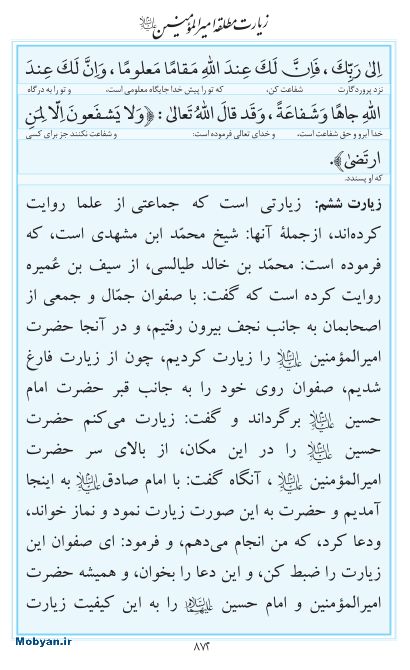 زیارت مطلقه امیرالمؤمنین علیه‌السلام
اِلىٰ رَبِّكَ ، فَاِنَّ لَكَ عِندَ اللّٰهِ مَقامًا مَعلومًا ، وَاِنَّ لَكَ عِندَ
نزد پروردگارت شفاعت کن، که تو را پیش خدا جایگاه معلومی است، و تو را به درگاه
اللّٰهِ جاهًا وَشَفاعَةً ، وَقَد قالَ اللّٰهُ تَعالىٰ : ﴿وَلا یَشفَعونَ اِلّا لِمَنِ
خدا آبرو و حق شفاعت است، و خدای تعالی فرموده است: و شفاعت نکنند جز برای کسی
ارتَضىٰ﴾.
که او پسندد.
زیارت ششم: زیارتی است که جماعتی از علما روایت
کرده‌اند، ازجملهٔ آنها: شیخ محمّد ابن مشهدی است، که
فرموده است: محمّد بن خالد طیالسی، از سیف بن عُمیره
روایت کرده است که گفت: با صفوان جمّال و جمعی از
اصحابمان به جانب نجف بیرون رفتیم، و در آنجا حضرت
امیرالمؤمنین علیه‌السلام را زیارت کردیم، چون از زیارت فارغ
شدیم، صفوان روی خود را به جانب قبر حضرت امام
حسین علیه‌السلام برگرداند و گفت: زیارت می‌کنم حضرت
حسین علیه‌السلام را در این مکان، از بالای سر حضرت
امیرالمؤمنین علیه‌السلام ، آنگاه گفت: با امام صادق علیه‌السلام به اینجا
آمدیم و حضرت به این صورت زیارت نمود و نماز خواند،
ودعا کرد، که من انجام می‌دهم، و فرمود: ای صفوان این
زیارت را ضبط کن، و این دعا را بخوان، و همیشه حضرت
امیرالمؤمنین و امام حسین علیهماالسلام را به این کیفیت زیارت
۸۷۲
Mobyan.ir